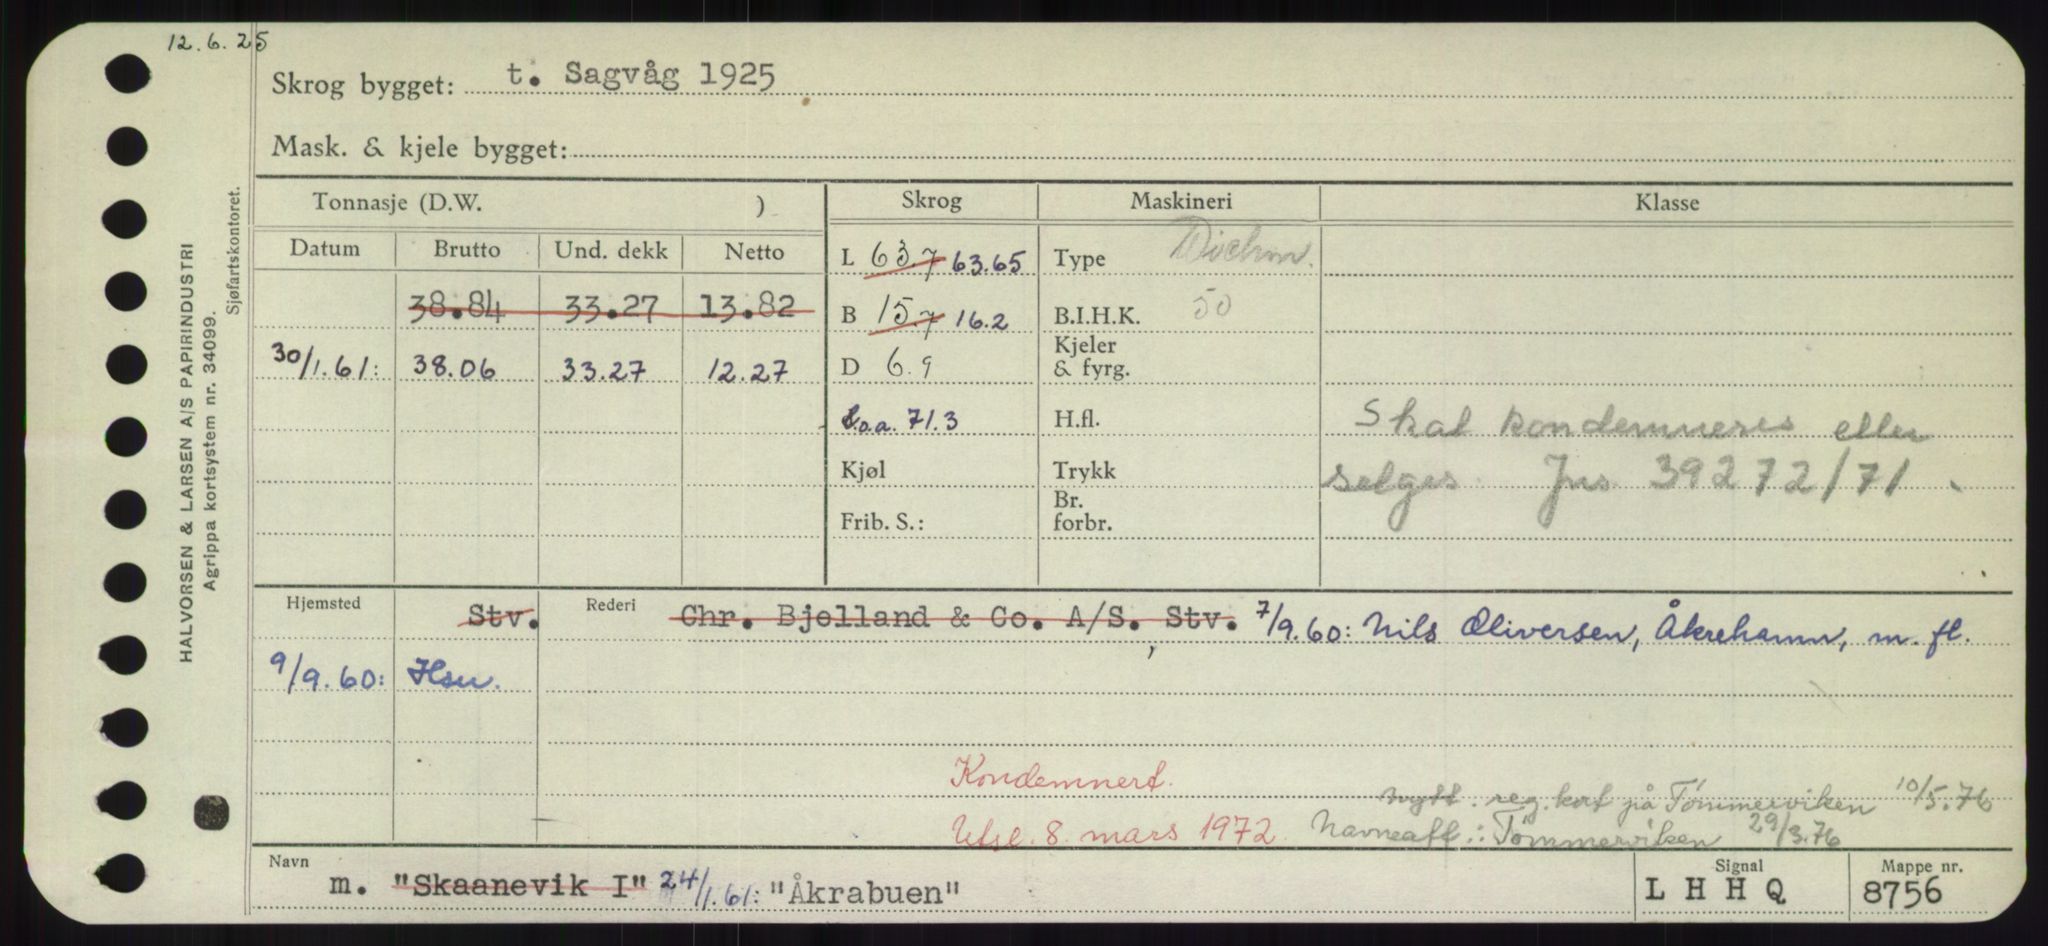 12.6.25
Skrog bygget: t. Sagvåg 1925
Mask. & kjele bygget:
HALVORSEN & LARSEN A/S PAPIRINDUSTRI
Agrippa kortsystem nr. 34099.
Sjøfartskontoret.
Tonnasje (D.W. ) Skrog Maskineri Klasse
Datum Brutto Und. dekk Netto L 63.7 63.65 Type Wichm.
38.84 33.27 13.82 B 15.7 16.2 B.I.H.K. 50
30/1.61: 38.06 33.27 12.27 D 6.9 Kjeler & fyrg.
L.o.a. 71.3 H.fl. Skal kondemneres eller
Kjøl Trykk selges. Jns 39272/71.
Frib. S.: Br. forbr.
Hjemsted Stv. Rederi Chr. Bjelland & Co. A/S, Stv. 7/9.60: Nils Oliversen, Åkrehamn, m. fl.
9/9.60: Hsu.
Kondemnert. nytt. reg. kort på Tömmerviken 10/5.76
Utsl. 8. mars 1972. Navneatt.: Tömmerviken 29/3.76
Navn m. "Skaanevik I" 24/1.61: "Åkrabuen" Signal L H H Q Mappe nr. 8756